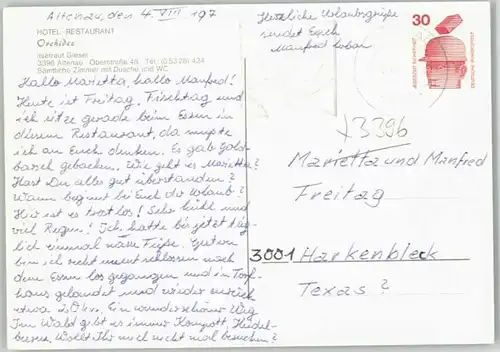 Altenau, den 4. VIII 197
HOTEL-RESTAURANT
Orchidee
Ilsetraut Giesel
3396 Altenau Oberstraße 49 Tel.: (0 53 28) 434
Sämtliche Zimmer mit Dusche und WC
Hallo Marietta, hallo Manfred!
Heute ist Freitag, Fischtag und
ich sitze gerade beim Essen in
diesem Restaurant, da mußte
ich an Euch denken. Es gab Gold-
barsch gebacken. Wie geht es Marietta?
Hast Du alles gut überstanden?
Wann beginnt bei Euch der Urlaub?
Hier ist es trostlos! Sehr kühl und
viel Regen! Ich hatte bis jetzt täg-
lich einmal nasse Füße. Gestern
bin ich recht unentschlossen nach
dem Essen losgegangen und in Torf-
haus gelandet und wieder zurück
etwa 20 km. Ein wunderschöner Weg
Im Wald gibt es immer Kompott, Heidel-
beeren. Wollt Ihr mich nicht mal besuchen?
Herzliche Urlaubsgrüße
sendet Euch
Manfred
30
JEDERZEIT SICHERHEIT
DEUTSCHE BUNDESPOST
x3396
Marietta und Manfred
Freitag
3001 Harkenbleck
Texas?